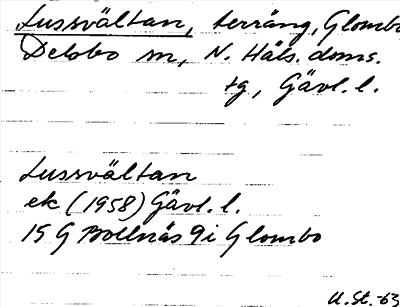 Lussvältan, terräng, Glombo
Delsbo sn, N. Häls. doms.
tg, Gävl. l.
Lussvältan
ek (1958) Gävl. l.
15 G Bollnäs 9i Glombo
U.St.-63